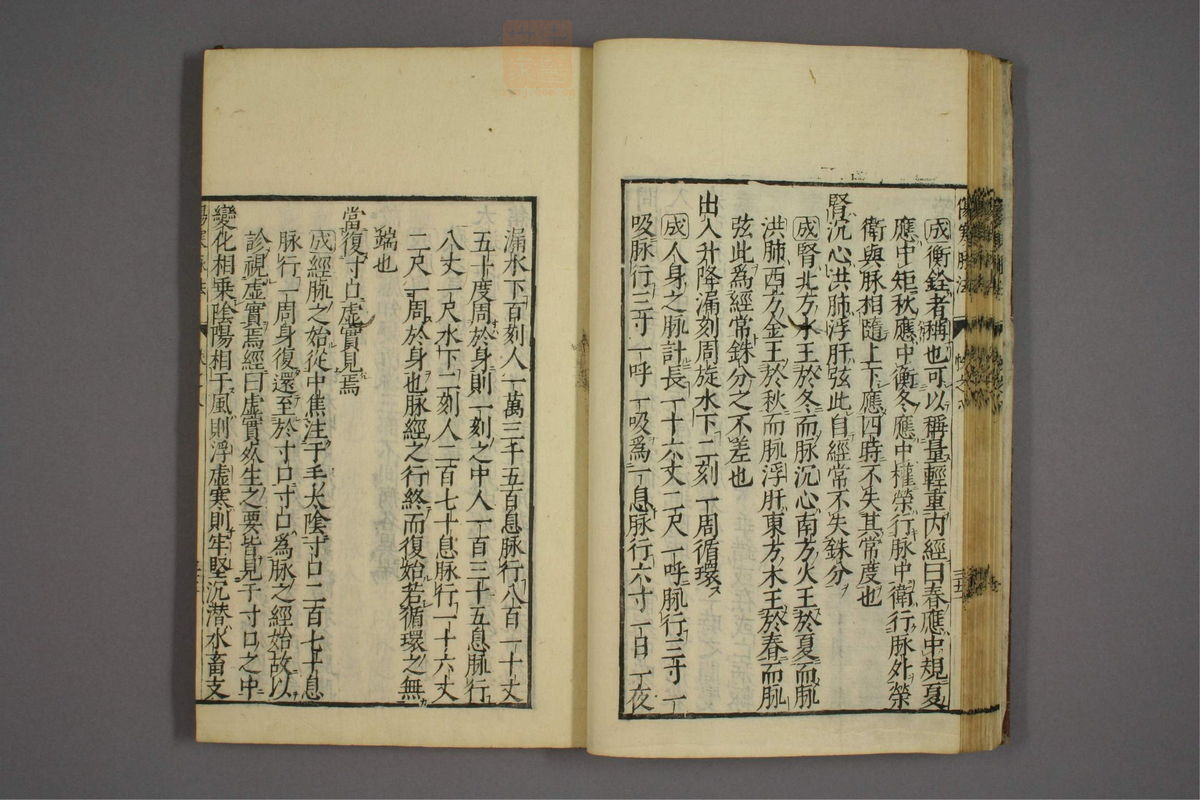 成衡銓者稱也可以稱量輕重内經曰春應中規夏
應中矩秋應中衡冬應中權榮行脉中衛行脉外榮
衛與脉相隨上下應四時不失其常度也
腎沉心洪肺浮肝弦此自經常不失銖分
成腎北方水王於冬而脉沉心南方火王於夏而脉
洪肺西方金王於秋而脉浮肝東方木王於春而脉
弦此爲經常銖分之不差也
出入升降漏刻周旋水下二刻一周循環
成人身之脉計長一十六丈二尺一呼脉行三寸一
吸脉行三寸一呼一吸爲一息脉行六寸一日一夜
漏水下百刻人一萬三千五百息脉行八百一十丈
五十度周於身則一刻之中人一百三十五息脉行
八丈一尺水下二刻人二百七十息脉行一十六丈
二尺一周於身也脉經之行終而復始若循環之無
端也
當復寸口虛實見焉
成經脉之始從中焦注于手太陰寸口二百七十息
脉行一周身復還至於寸口寸口爲脉之經始故以
診視虛實焉經曰虛實死生之要皆見于寸口之中
變化相乘陰陽相干風則浮虛寒則牢堅沉潜水畜支